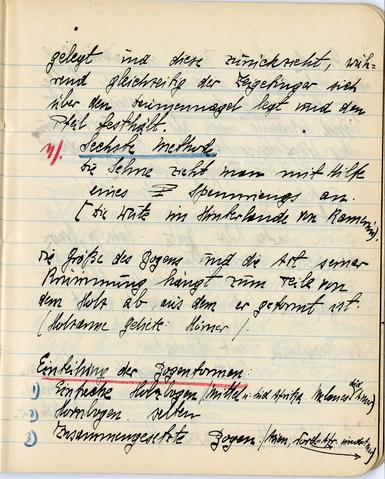 gelegt und diese zurückzieht, wäh-
rend gleichzeitig der Zeigefinger sich
über den Daumennagel legt und den
Pfeil festhält.
Sechste Methode.
Die Sehne zieht man mit Hilfe
eines Spannrings an.
(Die Wute im Hinterlande von Kamerun).
Die Größe des Bogens und die Art seiner
Krümmung hängt zum Teile von
dem Holz ab aus dem er geformt ist.
Einteilung der Bogenformen:
1) Einfache Holzbogen /Mittel u. Süd Afrika, Melanesien/
2) Hornbogen selten
3) Zusammengesetzte Bogen /Asien,